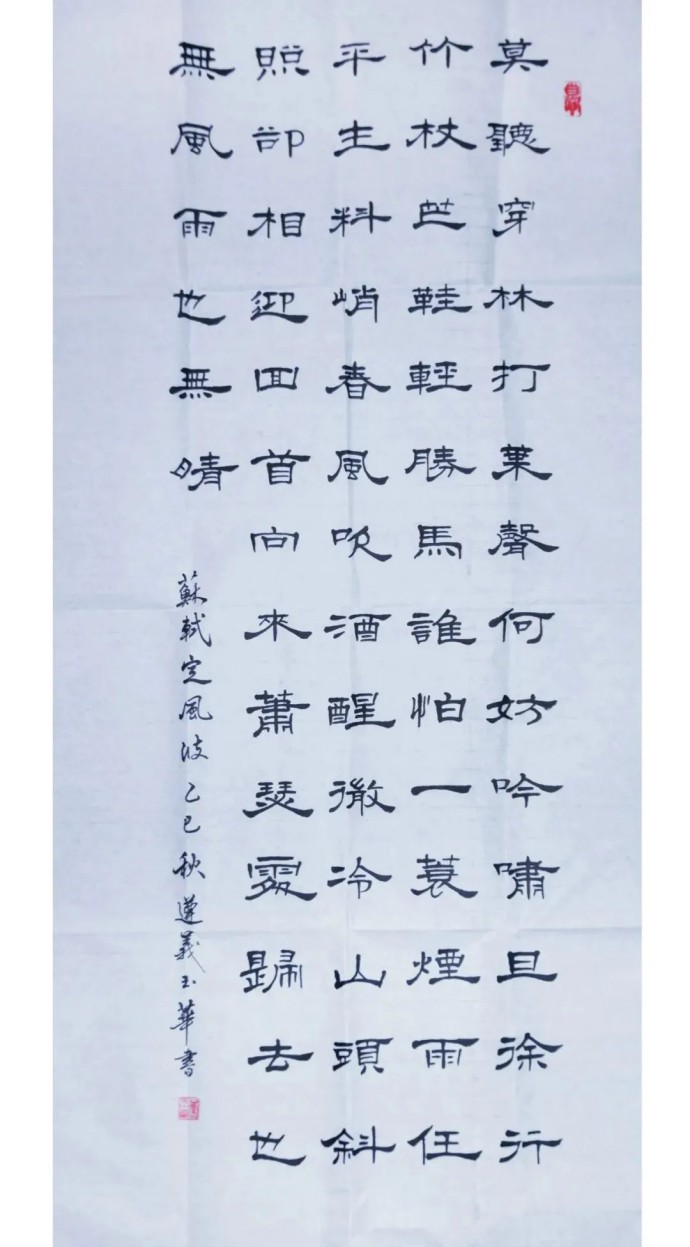 莫聽穿林打葉聲何妨吟嘯且徐行
竹杖芒鞋輕勝馬誰怕一蓑煙雨任
平生料峭春風吹酒醒微冷山頭斜
照卻相迎回首向來蕭瑟處歸去也
無風雨也無晴
蘇軾定風波乙巳秋遵義玉華書